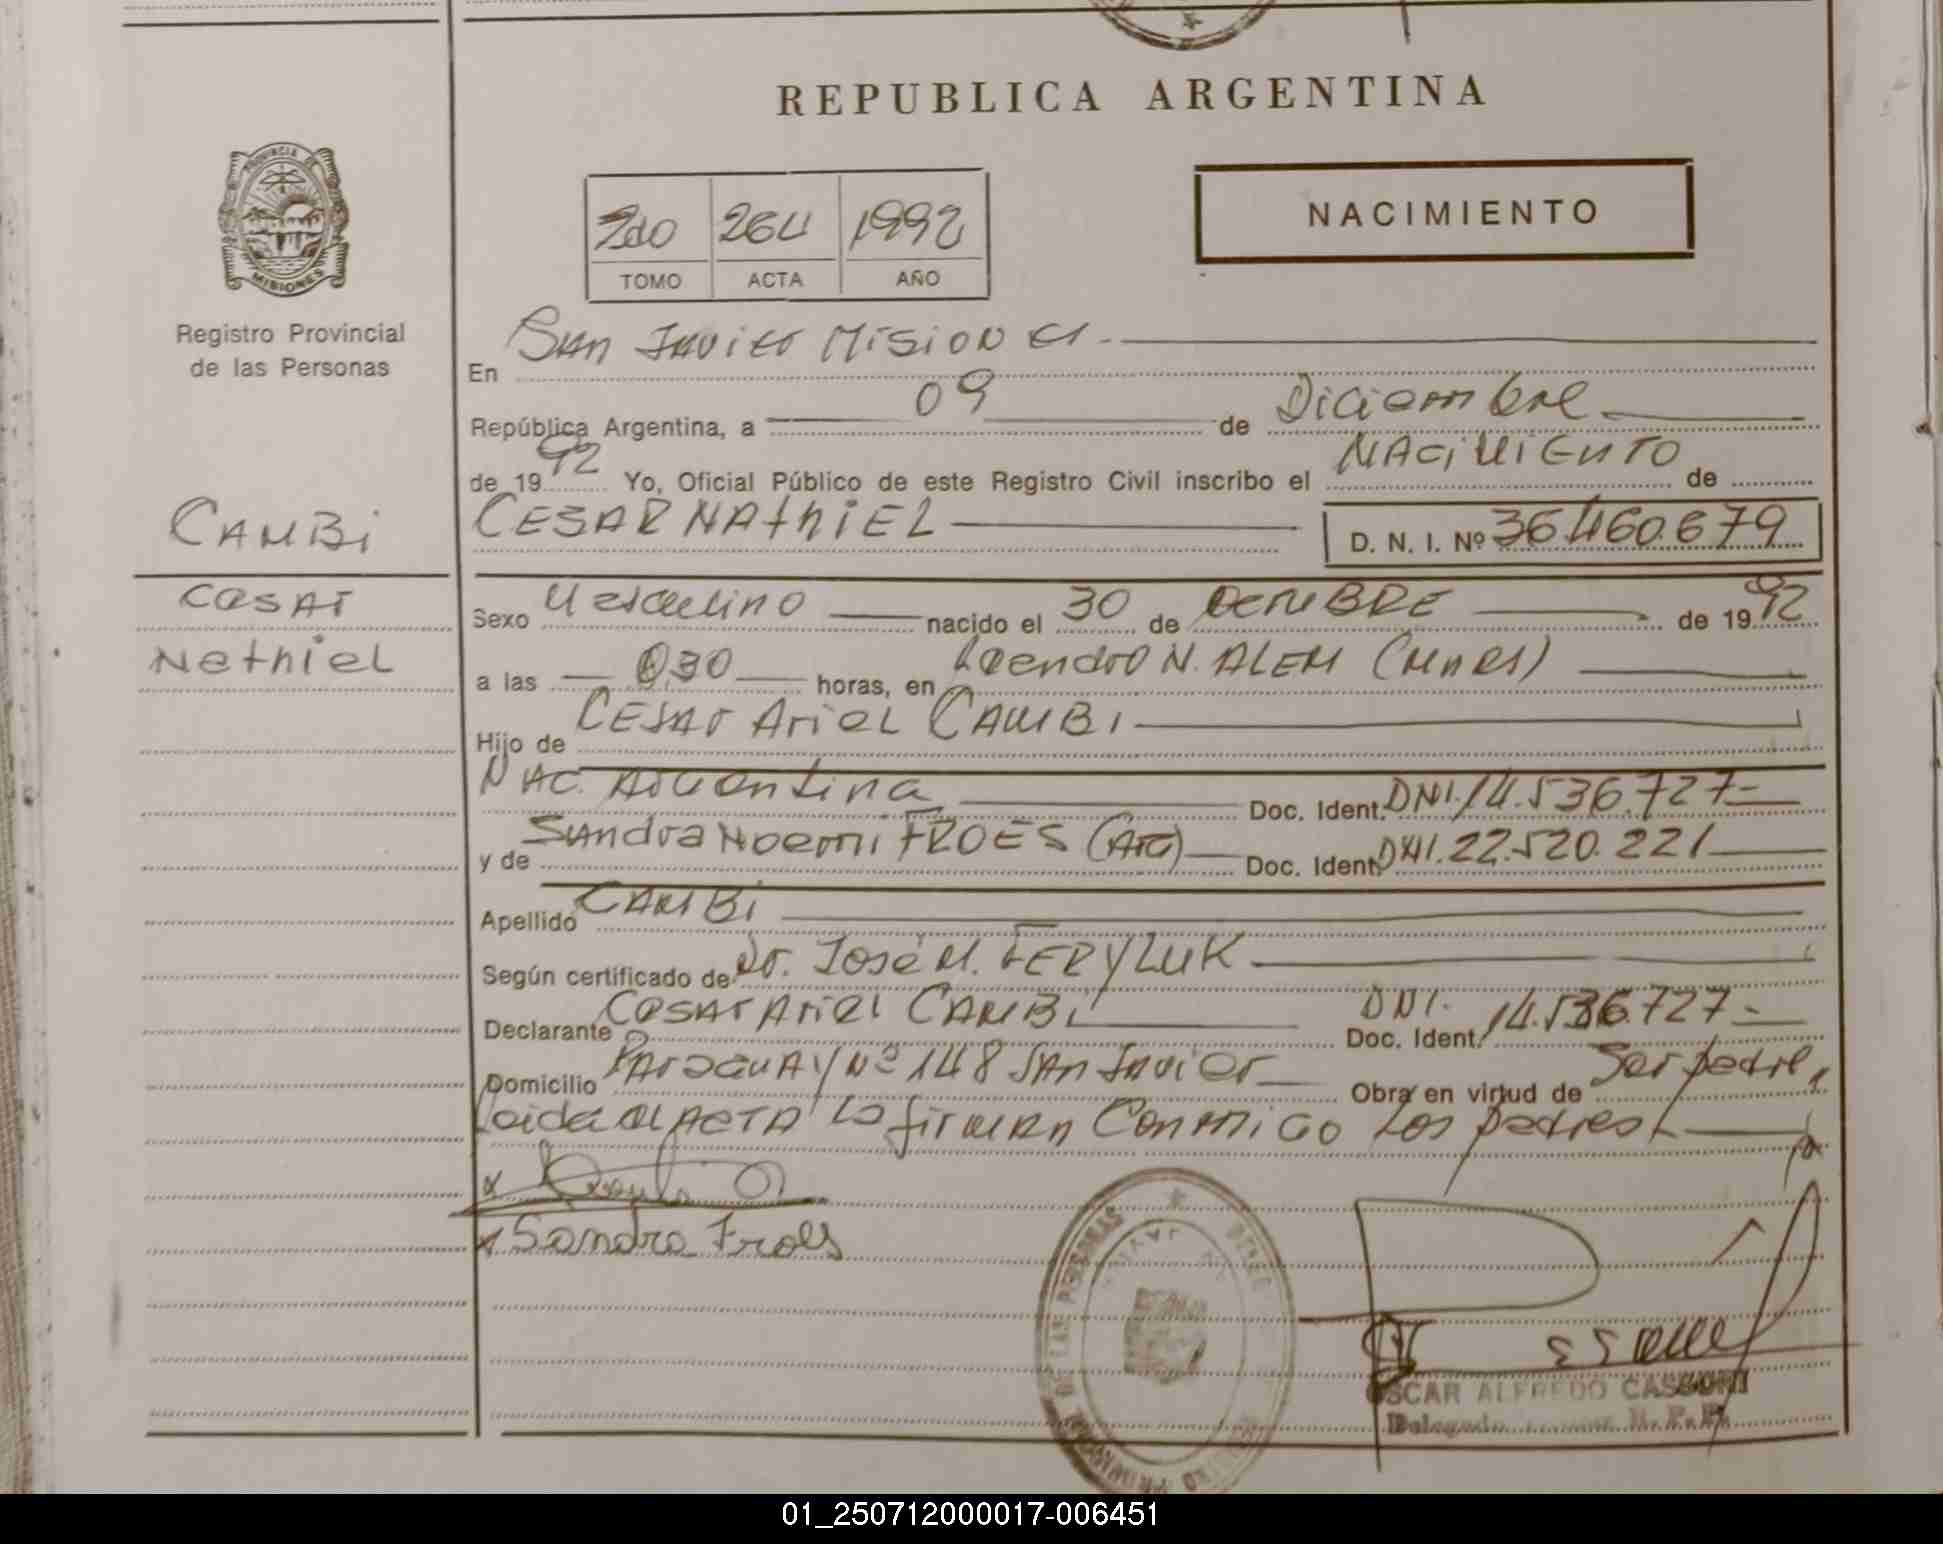 REPUBLICA ARGENTINA
PROVINCIA DE
MISIONES
Registro Provincial
de las Personas
2do 264 1992
TOMO ACTA AÑO
NACIMIENTO
En San Javier Misiones.
República Argentina, a 09 de Diciembre
de 1992 Yo, Oficial Público de este Registro Civil inscribo el NACiMiENTO de
CAMBi
CESAR NAthiEL D. N. I. Nº 36.460.679
CesAr
Nethiel
Sexo Masculino nacido el 30 de OCTUBRE de 1992
a las 0,30 horas, en Leandro N. ALEM (Mnes)
Hijo de CESAr AriEL CAMBi
NAC. Argentina Doc. Ident. DNI. 14.536.727-
y de Sandra Noemi FROES (Arg) Doc. Ident. DNI. 22.520.221
Apellido CAMBi
Según certificado de Dr. José M. FERYLUK
Declarante CesAr Ariel CAMBi DNI. Doc. Ident. 14.536.727-
Domicilio PAraguAy Nº 148 SAn Javier Obra en virtud de Ser padre,
Leida el ACTA la firman Conmigo Los padres
x
x Sandra Froes
DE LAS PERSONAS
OSCAR ALFREDO
Delegado R. P. P.
01_250712000017-006451